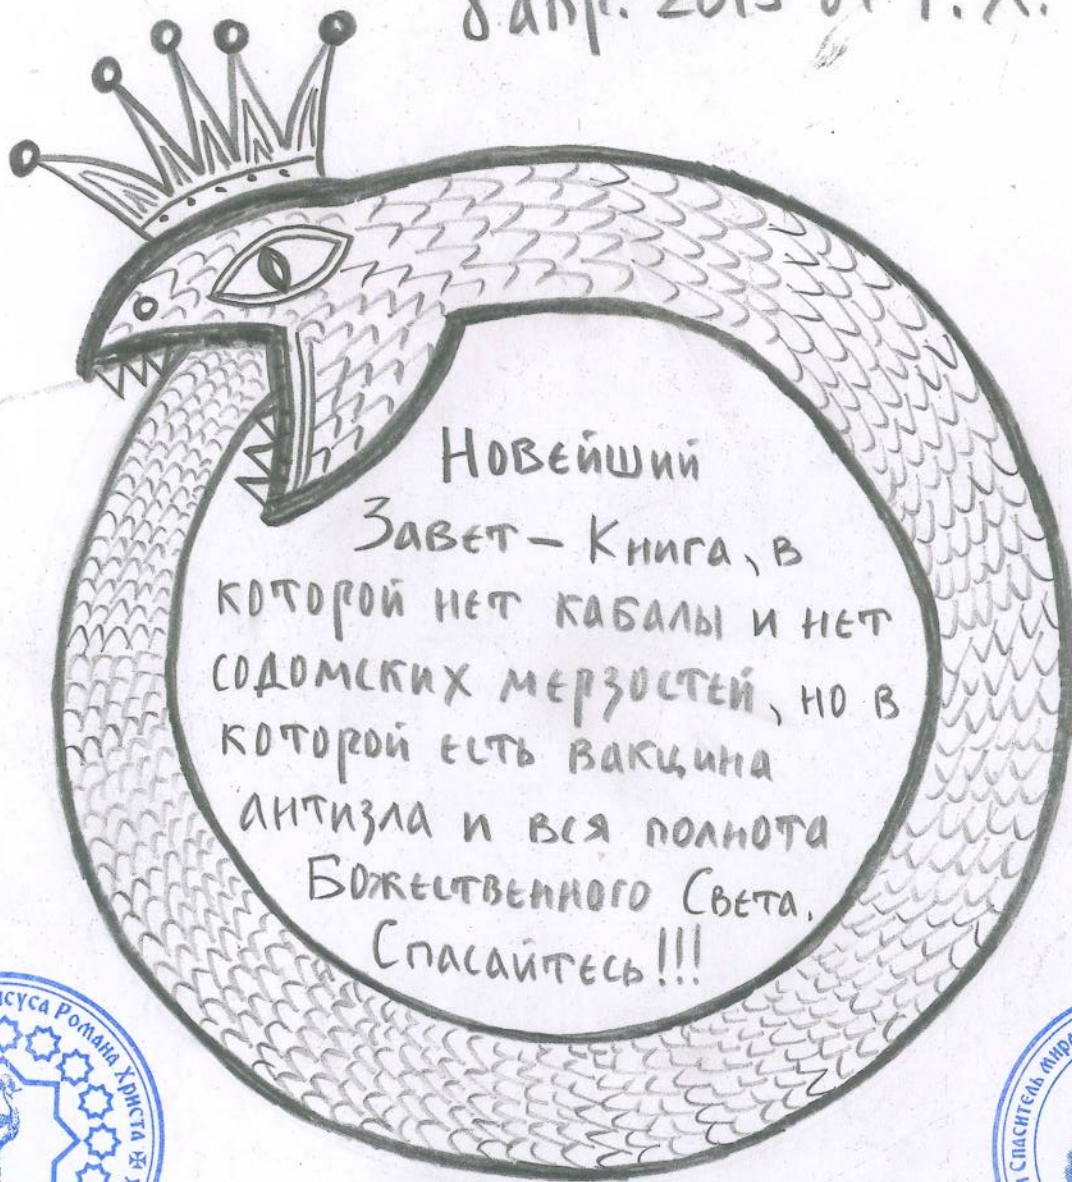 8 апр. 2015 от Р. Х.
Новейший
Завет – Книга, в
которой нет кабалы и нет
содомских мерзостей, но в
которой есть вакцина
антизла и вся полнота
Божественного Света.
Спасайтесь!!!
Романа Христа
Спаситель мира